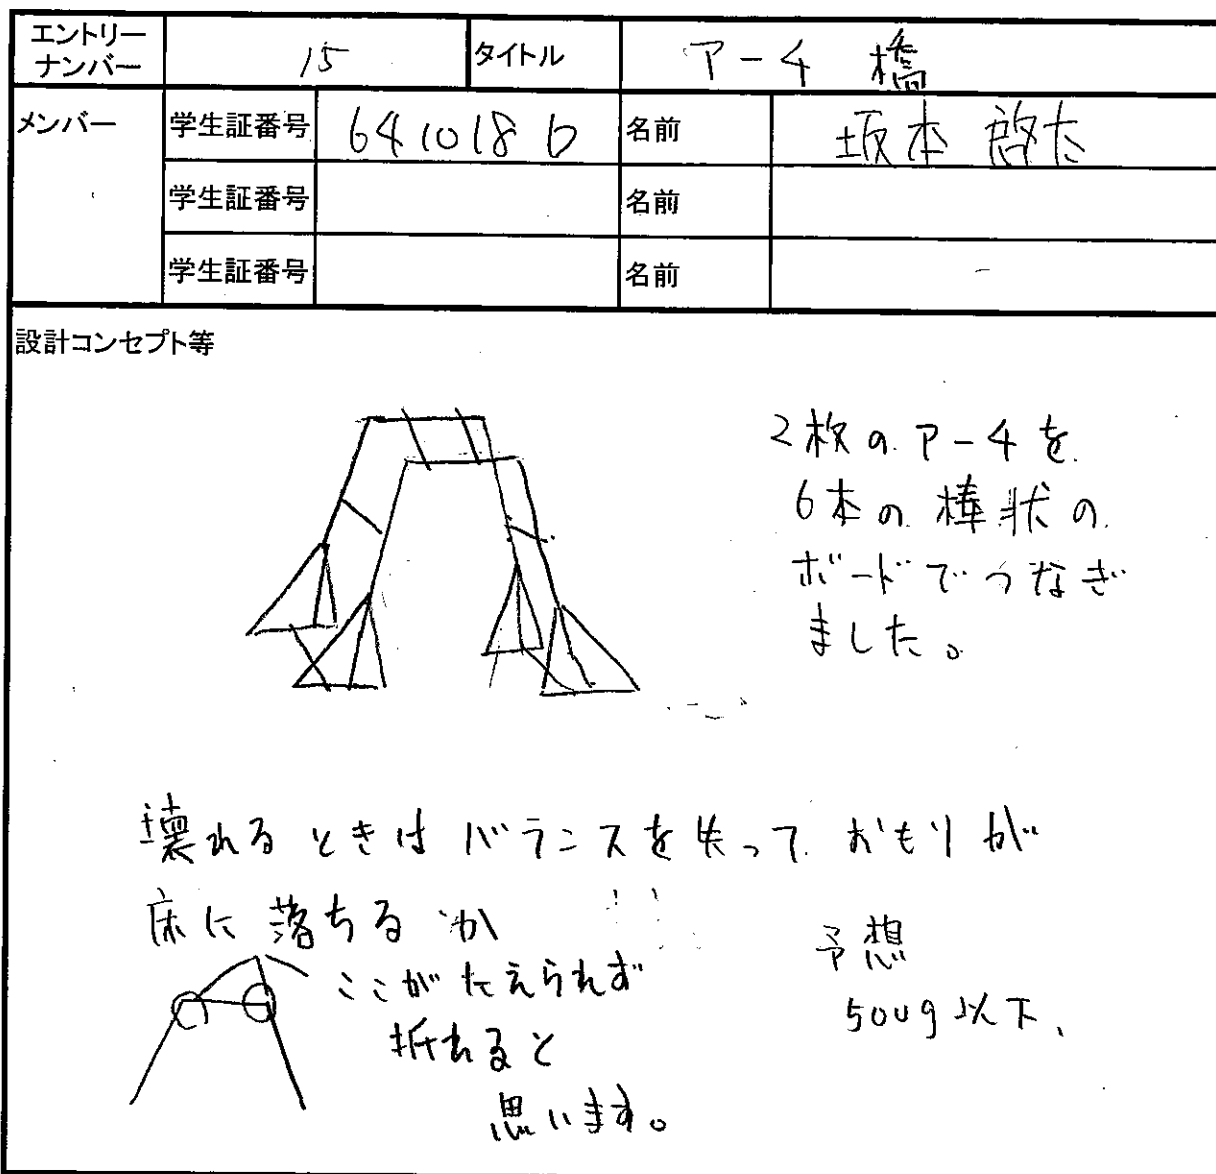 エントリーナンバー 15 タイトル アーチ 橋
メンバー 学生証番号 6410186 名前 坂本 啓太
学生証番号 名前
学生証番号 名前
設計コンセプト等
2枚のアーチを
6本の棒状の
ボードでつなぎ
ました。
壊れるときはバランスを失って おもりが
床に落ちるか
ここがたえられず
折れると
思います。
予想
500g以下、